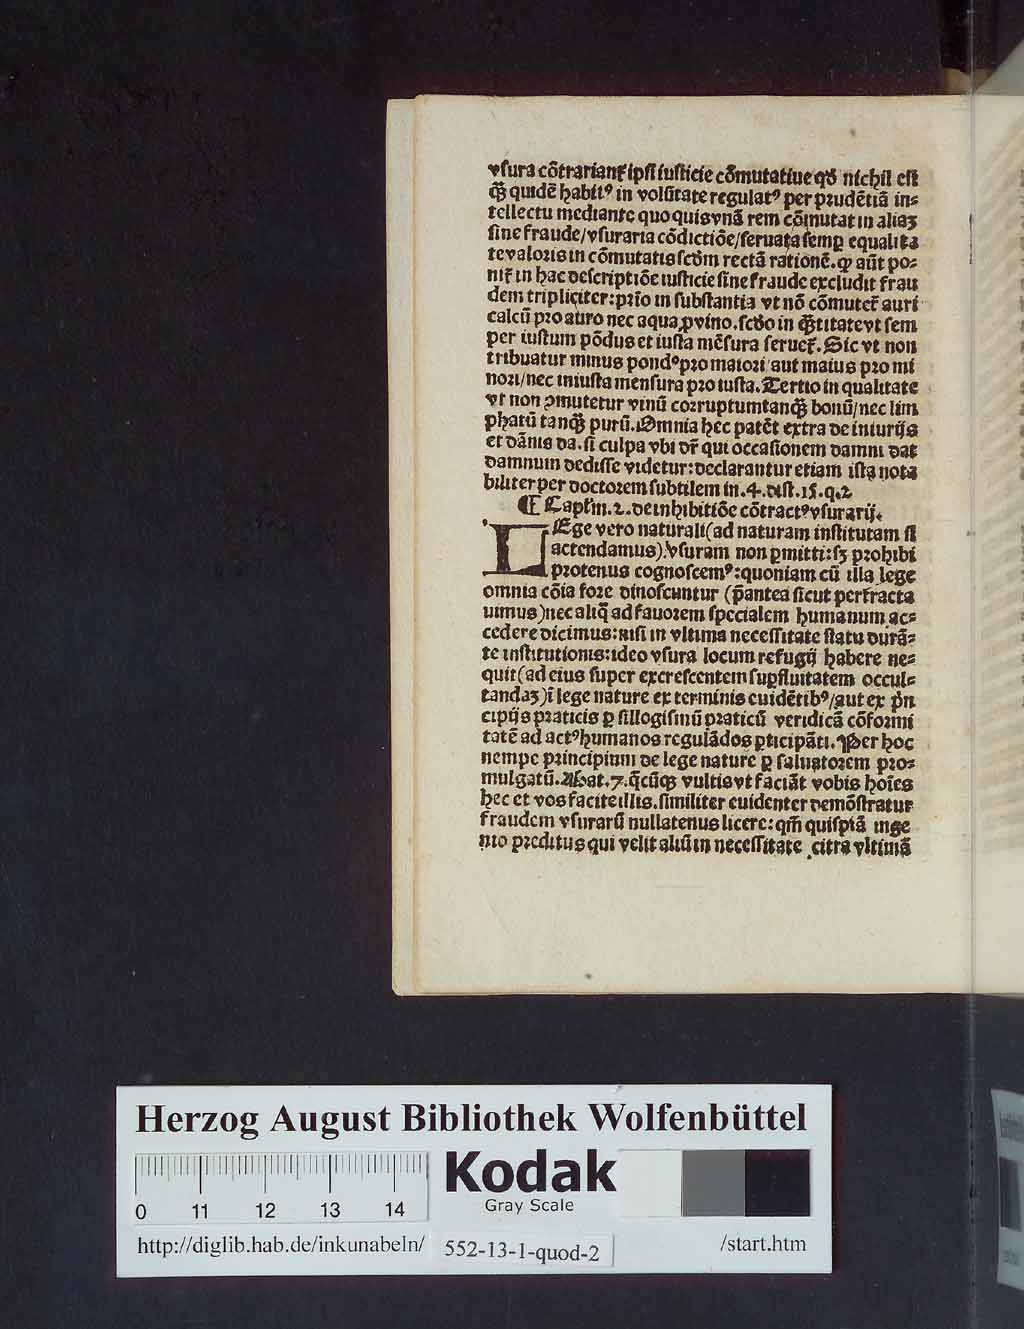 vſura cõtrarianť ipſi iuſticie cõmutatiue qď nichil eſt
q̃ꝫ quidẽ habitꝰ in volũtate regulatꝰ per prudẽtiã in⸗
tellectu mediante quo quis vnã rem cõmutat in aliaꝫ
ſine fraude/vſuraria cõdictiõe/ſeruata ſemꝑ equalita
te valoris in cõmutatis ſcďm rectã rationẽ. ꝙ aũt po⸗
niť in hac deſcriptiõe iuſticie ſine fraude excludit frau
dem tripliciter: prĩo in ſubſtantia vt nõ cõmuteť auri
calcũ pro auro nec aqua ꝓ vino. ſcďo in q̃ꝫtitate vt ſem
per iuſtum põdus et iuſta mẽſura ſerueť. Sic vt non
tribuatur minus pondꝰ pro maiori/aut maius pro mi
nori/nec iniuſta menſura pro iuſta. Tertio in qualitate
vt non ꝯmutetur vinũ corruptum tanq̃ꝫ bonũ/nec lim
phatũ tanq̃ꝫ purũ. Omnia hec patẽt extra de iniurijs
et dãnis da. ſi culpa vbi dr̃ qui occaſionem damni dat
damnum dediſſe videtur: declarantur etiam iſta nota
biliter per doctorem ſubtilem in .4. diſt. 15. q. 2
¶ Capľm. 2. de inhibitiõe cõtractꝰ vſurarij.
LEge vero naturali (ad naturam inſtitutam ſi
actendamus) vſuram non ꝑmitti: ſꝫ prohibi
protenus cognoſcemꝰ: quoniam cũ illa lege
omnia cõia fore dinoſcuntur (p̃antea ſicut perťracta
uimus) nec aliq̃ ad fauorem ſpecialem humanum ac⸗
cedere dicimus: niſi in vltima neceſſitate ſtatu durã⸗
te inſtitutionis: ideo vſura locum refugij habere ne⸗
quit (ad eius ſuper excreſcentem ſuꝑfluitatem occul⸗
tandaꝫ) ĩ lege nature ex terminis euidẽtibꝰ/aut ex p̃n
cipijs praticis ꝑ ſillogiſmũ praticũ veridicã cõformi
tatẽ ad actꝰ humanos regulãdos ꝑticipãti. Per hoc
nempe principium de lege nature ꝑ ſaluatorem pro⸗
mulgatũ. Mat. 7. q̃cũqꝫ vultis vt faciãt vobis hoĩes
hec et vos facite illis. ſimiliter euidenter demõſtratur
fraudem vſurarũ nullatenus licere: qm̃ quiſpiã inge
nio preditus qui velit aliũ in neceſſitate citra vltimã
Herzog August Bibliothek Wolfenbüttel
0 11 12 13 14
Kodak
Gray Scale
http://diglib.hab.de/inkunabeln/ 552-13-1-quod-2 /start.htm